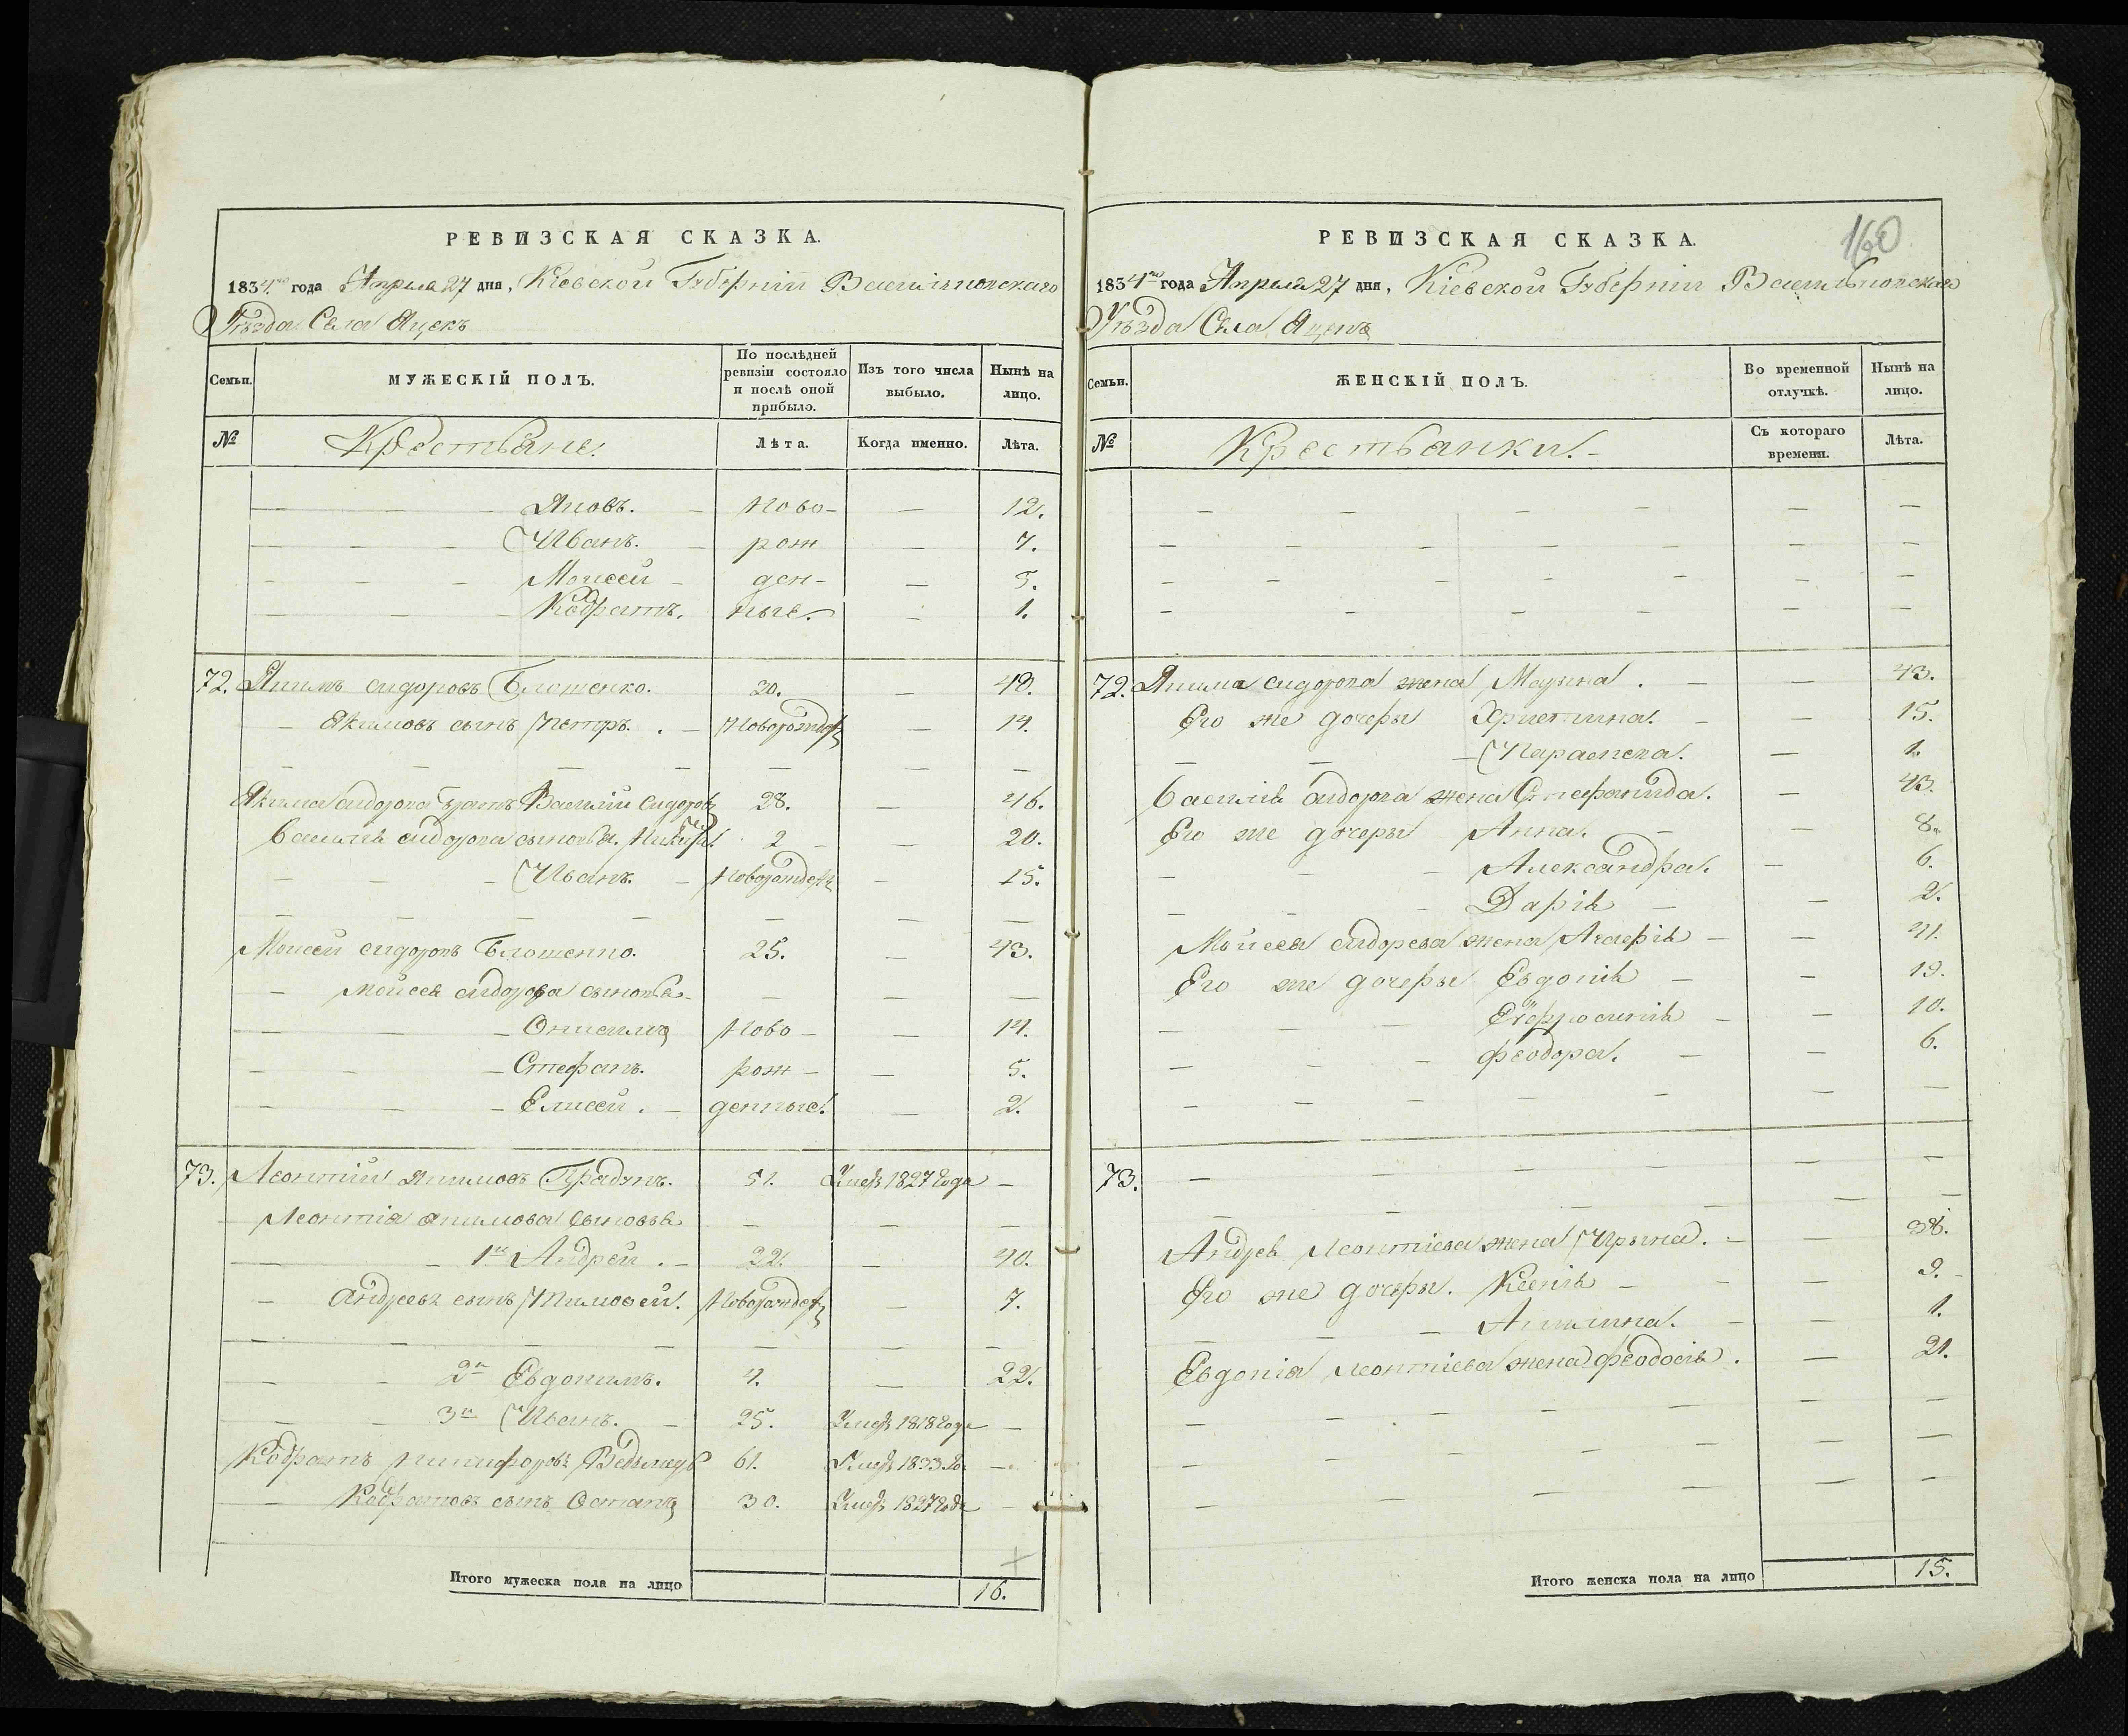 РЕВИЗСКАЯ СКАЗКА.
1834го года Апреля 27 дня, Кіевской Губерніи Васильковскаго
Уѣзда Села Яцекъ
Семьи.
МУЖЕСКІЙ ПОЛЪ.
По послѣдней ревизіи состояло и послѣ оной прибыло.
Изъ того числа выбыло.
Нынѣ на лицо.
№ Крестьяне. Лѣта. Когда именно. Лѣта.
— — — Яковъ. — Ново- — 12.
— — — Иванъ. — рож — 7.
— — — Моисей — ден- — 5.
— — — Кодратъ. ные. — 1.
72. Якимъ сидоровъ Блошенко. 30. — 48.
— Якимовъ сынъ Петръ. — Новорожден — 14.
— — — — — — —
Якима сидорова братъ Василій Сидоровъ 28. — 46.
Василія сидорова сыновья. 2 — 20.
— — — Иванъ. — Новорожден — 15.
— — — — — — —
Моисей сидоровъ Блошенко. 25. — 43.
— Моисея сидорова сыновья — — — —
— — — Онисимъ Ново — — 14.
— — — Стефанъ. рож — — 5.
— — — Елисей. — денные. — 2.
73. Леонтій якимовъ 51. Умеръ 1827 Года —
— Леонтія якимова сыновья — — —
— — 1й Андрей. — 22. — 40.
— Андреевъ сынъ Тимофей. Новорожден — 7.
— — — — — — —
— — 2й Евдокимъ. 4. — 22.
— — 3й Иванъ. — 25. Умеръ 1818 Года —
Кодратъ Никифоровъ Ведьмедь 61. Умеръ 1833 Го. —
— Кодратовъ сынъ Остапъ 30. Умеръ 1827 Года —
Итого мужеска пола на лицо 16.
160
РЕВИЗСКАЯ СКАЗКА.
1834го года Апреля 27 дня, Кіевской Губерніи Васильковскаго
Уѣзда Села Яцекъ
Семьи.
ЖЕНСКІЙ ПОЛЪ.
Во временной отлучкѣ.
Нынѣ на лицо.
№ Крестьянки. — Съ котораго времени. Лѣта.
— — — — — —
— — — — — —
— — — — — —
— — — — — —
72. Якима сидорова жена Марина. — — 43.
Его же дочеры Христина. — — 15.
— — — Параскева. — 1.
Василія сидорова жена Стефанида. — 43.
Его же дочеры Анна. — — 8.
— — — Александра. — 6.
— — — Дарія — — 2.
Моисея сидорова жена Агафія — — 41.
Его же дочеры Евдокія — — 19.
— — — Ефросинія — — 10.
— — — Феодора. — — 6.
— — — — — —
73. — — — — — —
— — — — — —
Андрея Леонтіева жена Ирина. — — 38.
Его же дочеры. Ксенія — — 9.
— — — Акилина. — — 1.
Леонтіева жена Феодосія. — 21.
— — — — — —
— — — — — —
— — — — — —
Итого женска пола на лицо 15.